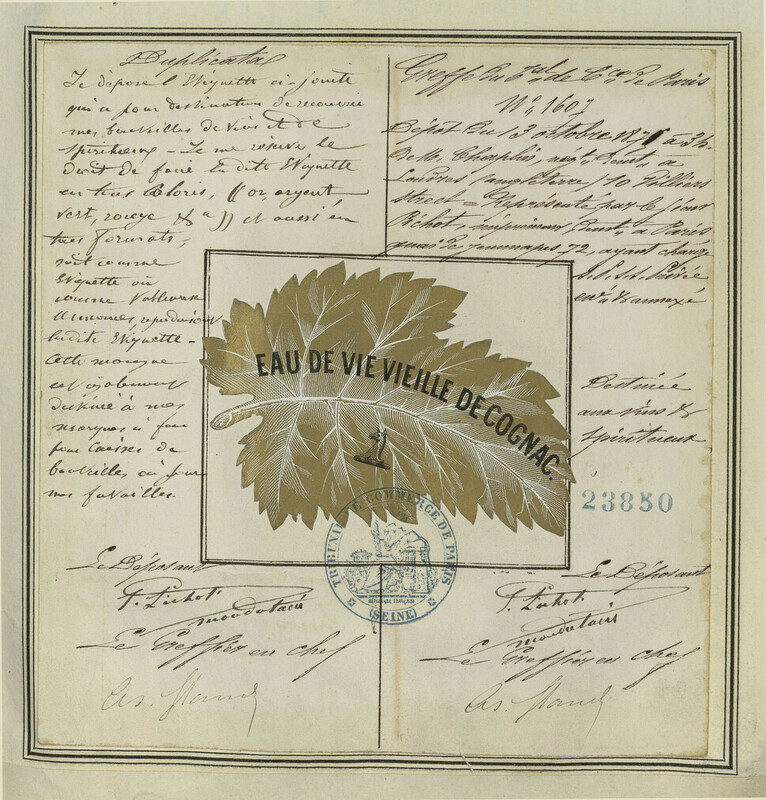 Duplicata
Je dépose l'Etiquette ci-jointe
qui a pour destination de recouvrir
mes bouteilles de vins et de
spiritueux - Je me réserve le
droit de faire la dite Etiquette
en tous coloris, ((or, argent
vert, rouge &a)) et aussi en
tous formats,
soit comme
Etiquette ou
comme
la dite Etiquette -
Cette marque
est également
destinée à mes
marques à feu
pour caisses de
bouteilles ou pour
mes futailles.
Greffe du bal de Cce de Paris
No 1607
Dépôt du 13 octobre 187 à 3h.
de M. Chaplin, negt demt à
Londres, angleterre, 10 Villiers
street = Représenté par le sieur
Pichot, imprimeur, demt à Paris
quai de jemmapes, 72, ayant charge
annexé
Destinée
aux vins &
spiritueux
EAU DE VIE VIEILLE DE COGNAC.
23850
TRIBUNAL DE COMMERCE DE PARIS
RÉPUBLIQUE FRANÇAISE
(SEINE)
Le Déposant
F. Pichot
mandataire
Le Greffier en chef
Le Déposant
F. Pichot
mandataire
Le Greffier en chef